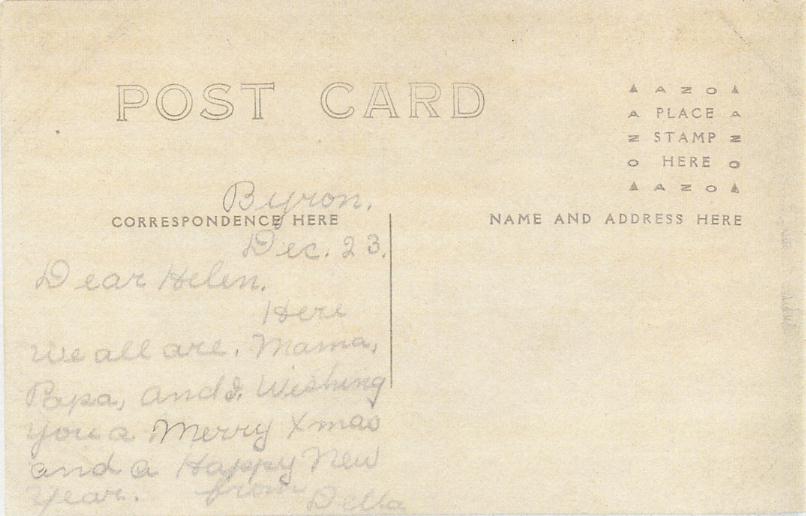 POST CARD
▲ A Z O ▲
A PLACE A
Z STAMP Z
O HERE O
▲ A Z O ▲
Byron.
CORRESPONDENCE HERE
NAME AND ADDRESS HERE
Dec. 23.
Dear Helen.
Here
we all are. Mama,
Papa, and I. Wishing
you a Merry Xmas
and a Happy New
Year. from
Della